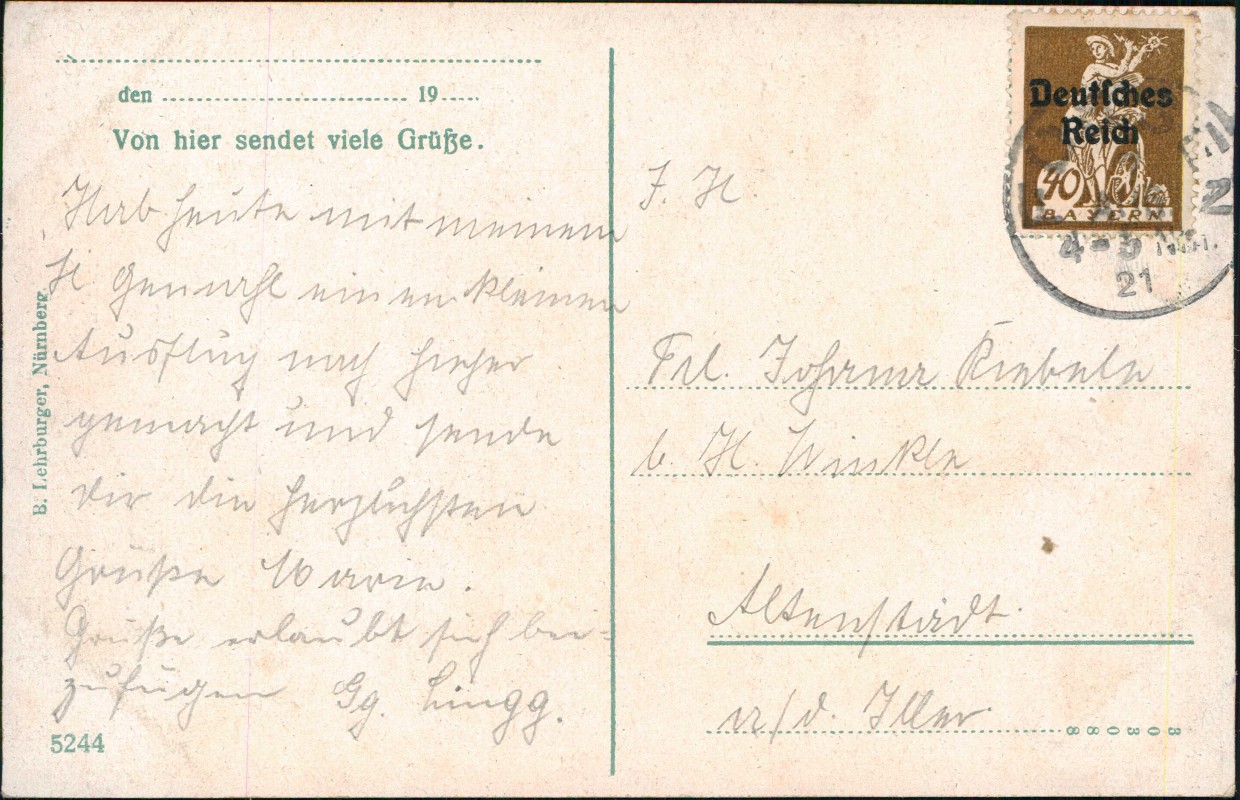 den ........ 19....
Von hier sendet viele Grüße.
Hab heute mit meinem
H Gemahl einen kleinen
Ausflug nach hieher
gemacht und sende
dir die herzlichsten
Grüße Marie.
Grüße erlaubt sich bei-
zufügen Gg. Lingg.
5244
B. Lehrburger, Nürnberg
Deutsches
Reich
40
BAYERN
4-5 Nm.
21
F. H.
Frl. Johanna Riebele
b. H. Winkle
Altenstadt
a/d. Iller
30308 8